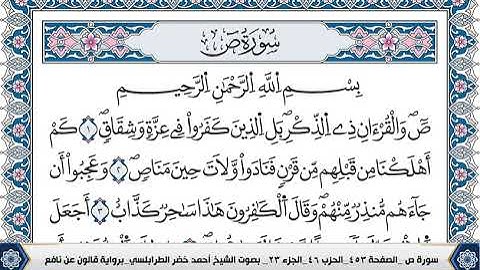 سُورَةُ صٓ
بِسْمِ اِ۬للَّهِ اِ۬لرَّحْمَٰنِ اِ۬لرَّحِيمِ
صٓ وَالْقُرْءَانِ ذِے اِ۬لذِّكْرِ بَلِ اِ۬لذِينَ كَفَرُواْ فِے عِزَّةٖ وَشِقَاقٖ ١ كَمَ
اَهْلَكْنَا مِن قَبْلِهِم مِّن قَرْنٖ فَنَادَواْ وَّلَاتَ حِينَ مَنَاصٖ ٢ وَعَجِبُواْ أَن
جَآءَهُم مُّنذِرٞ مِّنْهُمْ وَقَالَ اَ۬لْكَٰفِرُونَ هَٰذَا سَٰحِرٞ كَذَّابٌ ٣ اَجَعَلَ
سورة ص _الصفحة ٤٥٣_الحزب ٤٦_الجزء ٢٣_ بصوت الشيخ أحمد خضر الطرابلسي_برواية قالون عن نافع